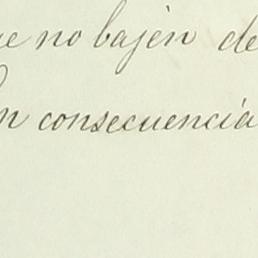 ue no bajen de
n consecuencia